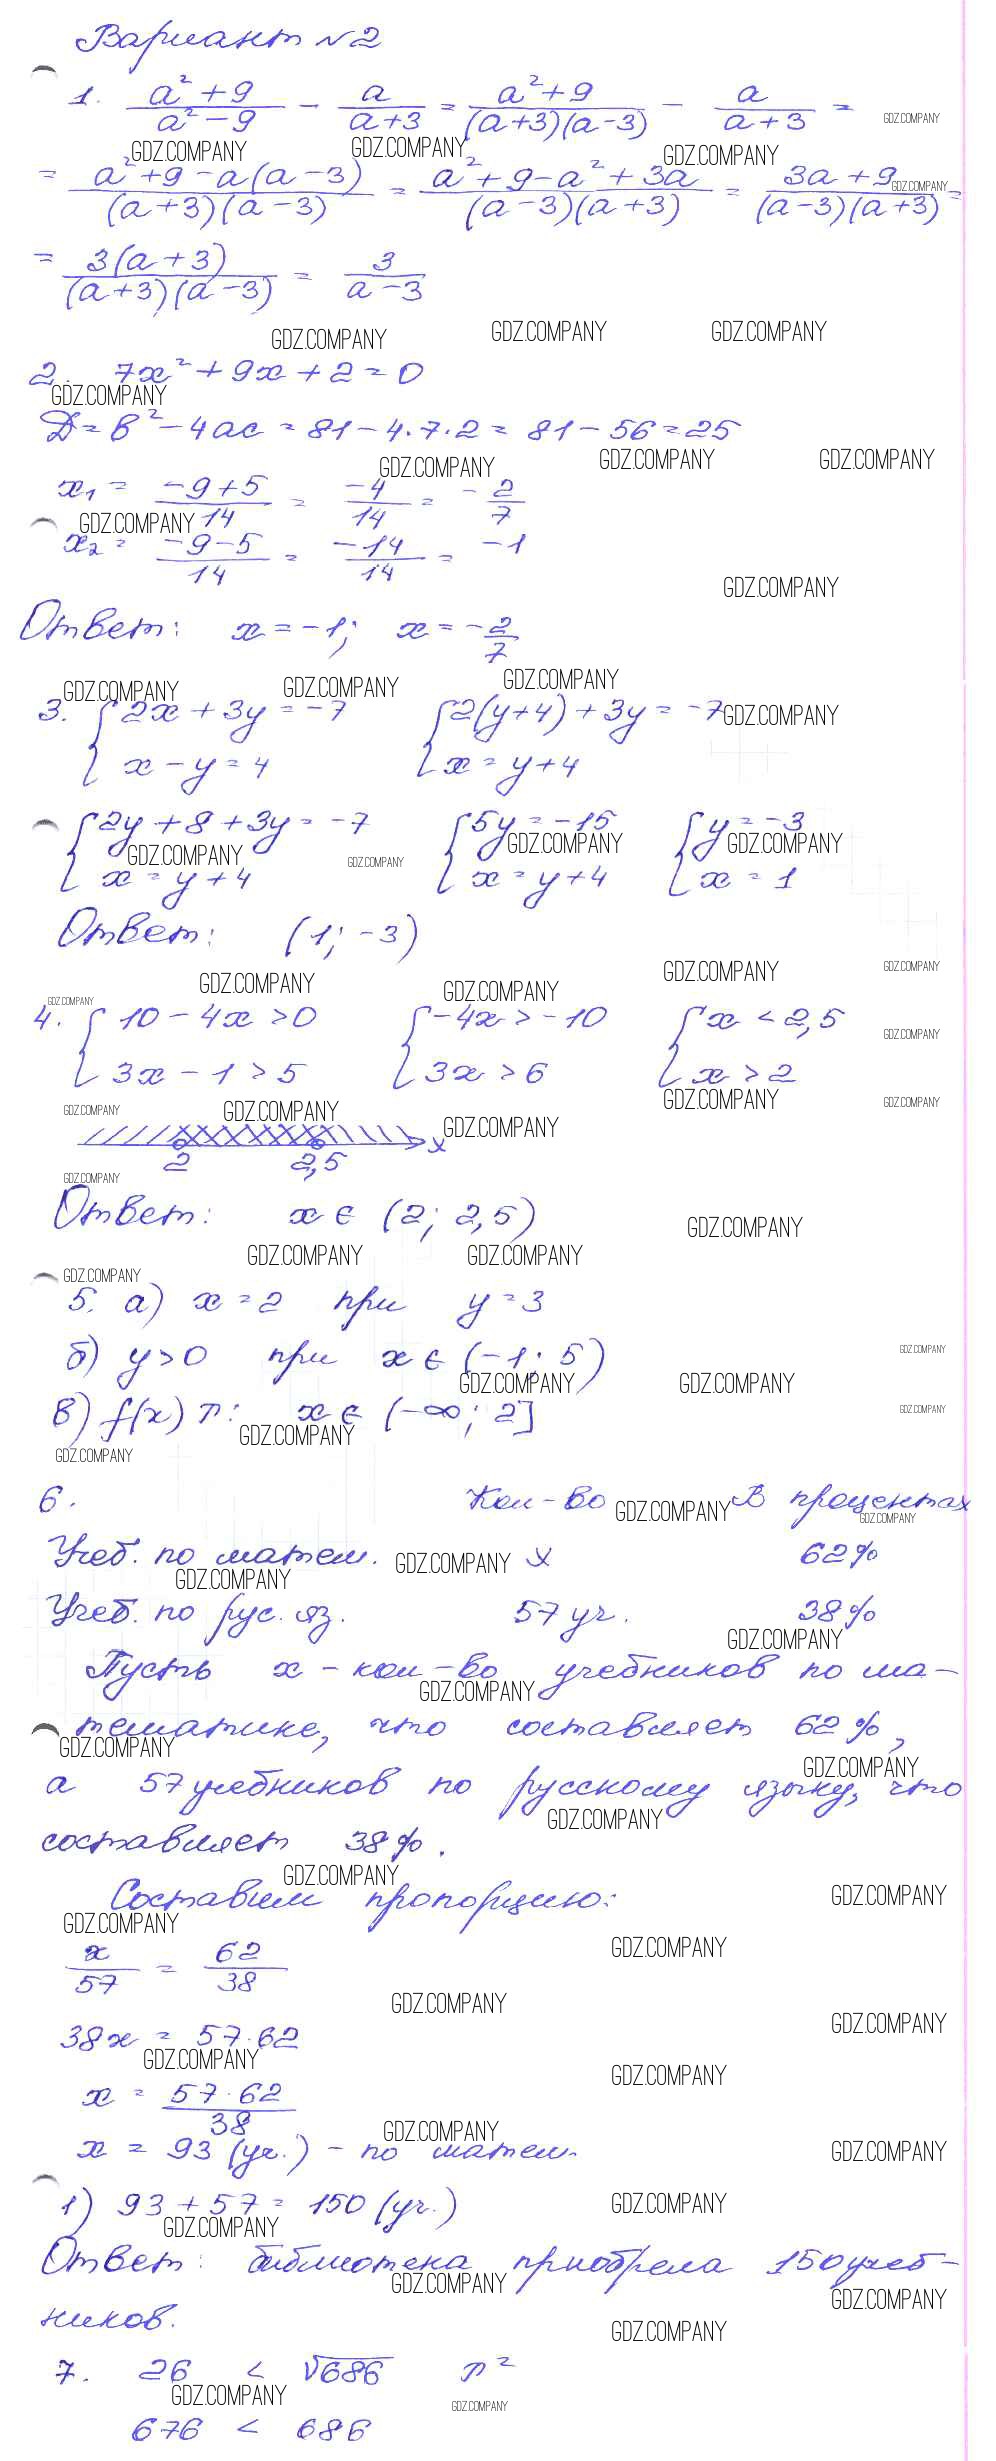 Вариант №2
1. (a²+9)/(a²-9) - a/(a+3) = (a²+9)/((a+3)(a-3)) - a/(a+3) =
= (a²+9-a(a-3))/((a+3)(a-3)) = (a²+9-a²+3a)/((a-3)(a+3)) = (3a+9)/((a-3)(a+3)) =
= 3(a+3)/((a+3)(a-3)) = 3/(a-3)
2. 7x²+9x+2=0
Д=в²-4ac=81-4·7·2=81-56=25
x₁ = (-9+5)/14 = -4/14 = -2/7
x₂ = (-9-5)/14 = -14/14 = -1
Ответ: x=-1; x=-2/7
3. {2x+3y=-7 {2(y+4)+3y=-7
x-y=4 x=y+4
{2y+8+3y=-7 {5y=-15 {y=-3
x=y+4 x=y+4 x=1
Ответ: (1; -3)
4. {10-4x>0 {-4x>-10 {x<2,5
3x-1>5 3x>6 x>2
x
2 2,5
Ответ: x∈(2; 2,5)
5. а) x=2 при y=3
б) y>0 при x∈(-1; 5)
в) f(x)↗: x∈(-∞; 2]
6. Кол-во В процентах
Учеб. по матем. x 62%
Учеб. по рус. яз. 57 уч. 38%
Пусть x - кол-во учебников по ма-
тематике, что составляет 62%,
а 57 учебников по русскому языку, что
составляет 38%.
Составим пропорцию:
x/57 = 62/38
38x = 57·62
x = 57·62/38
x = 93 (уч.) - по матем.
1) 93+57=150 (уч.)
Ответ: библиотека приобрела 150 учеб-
ников.
7. 26 < √686 ↗²
676 < 686
GDZ.COMPANY